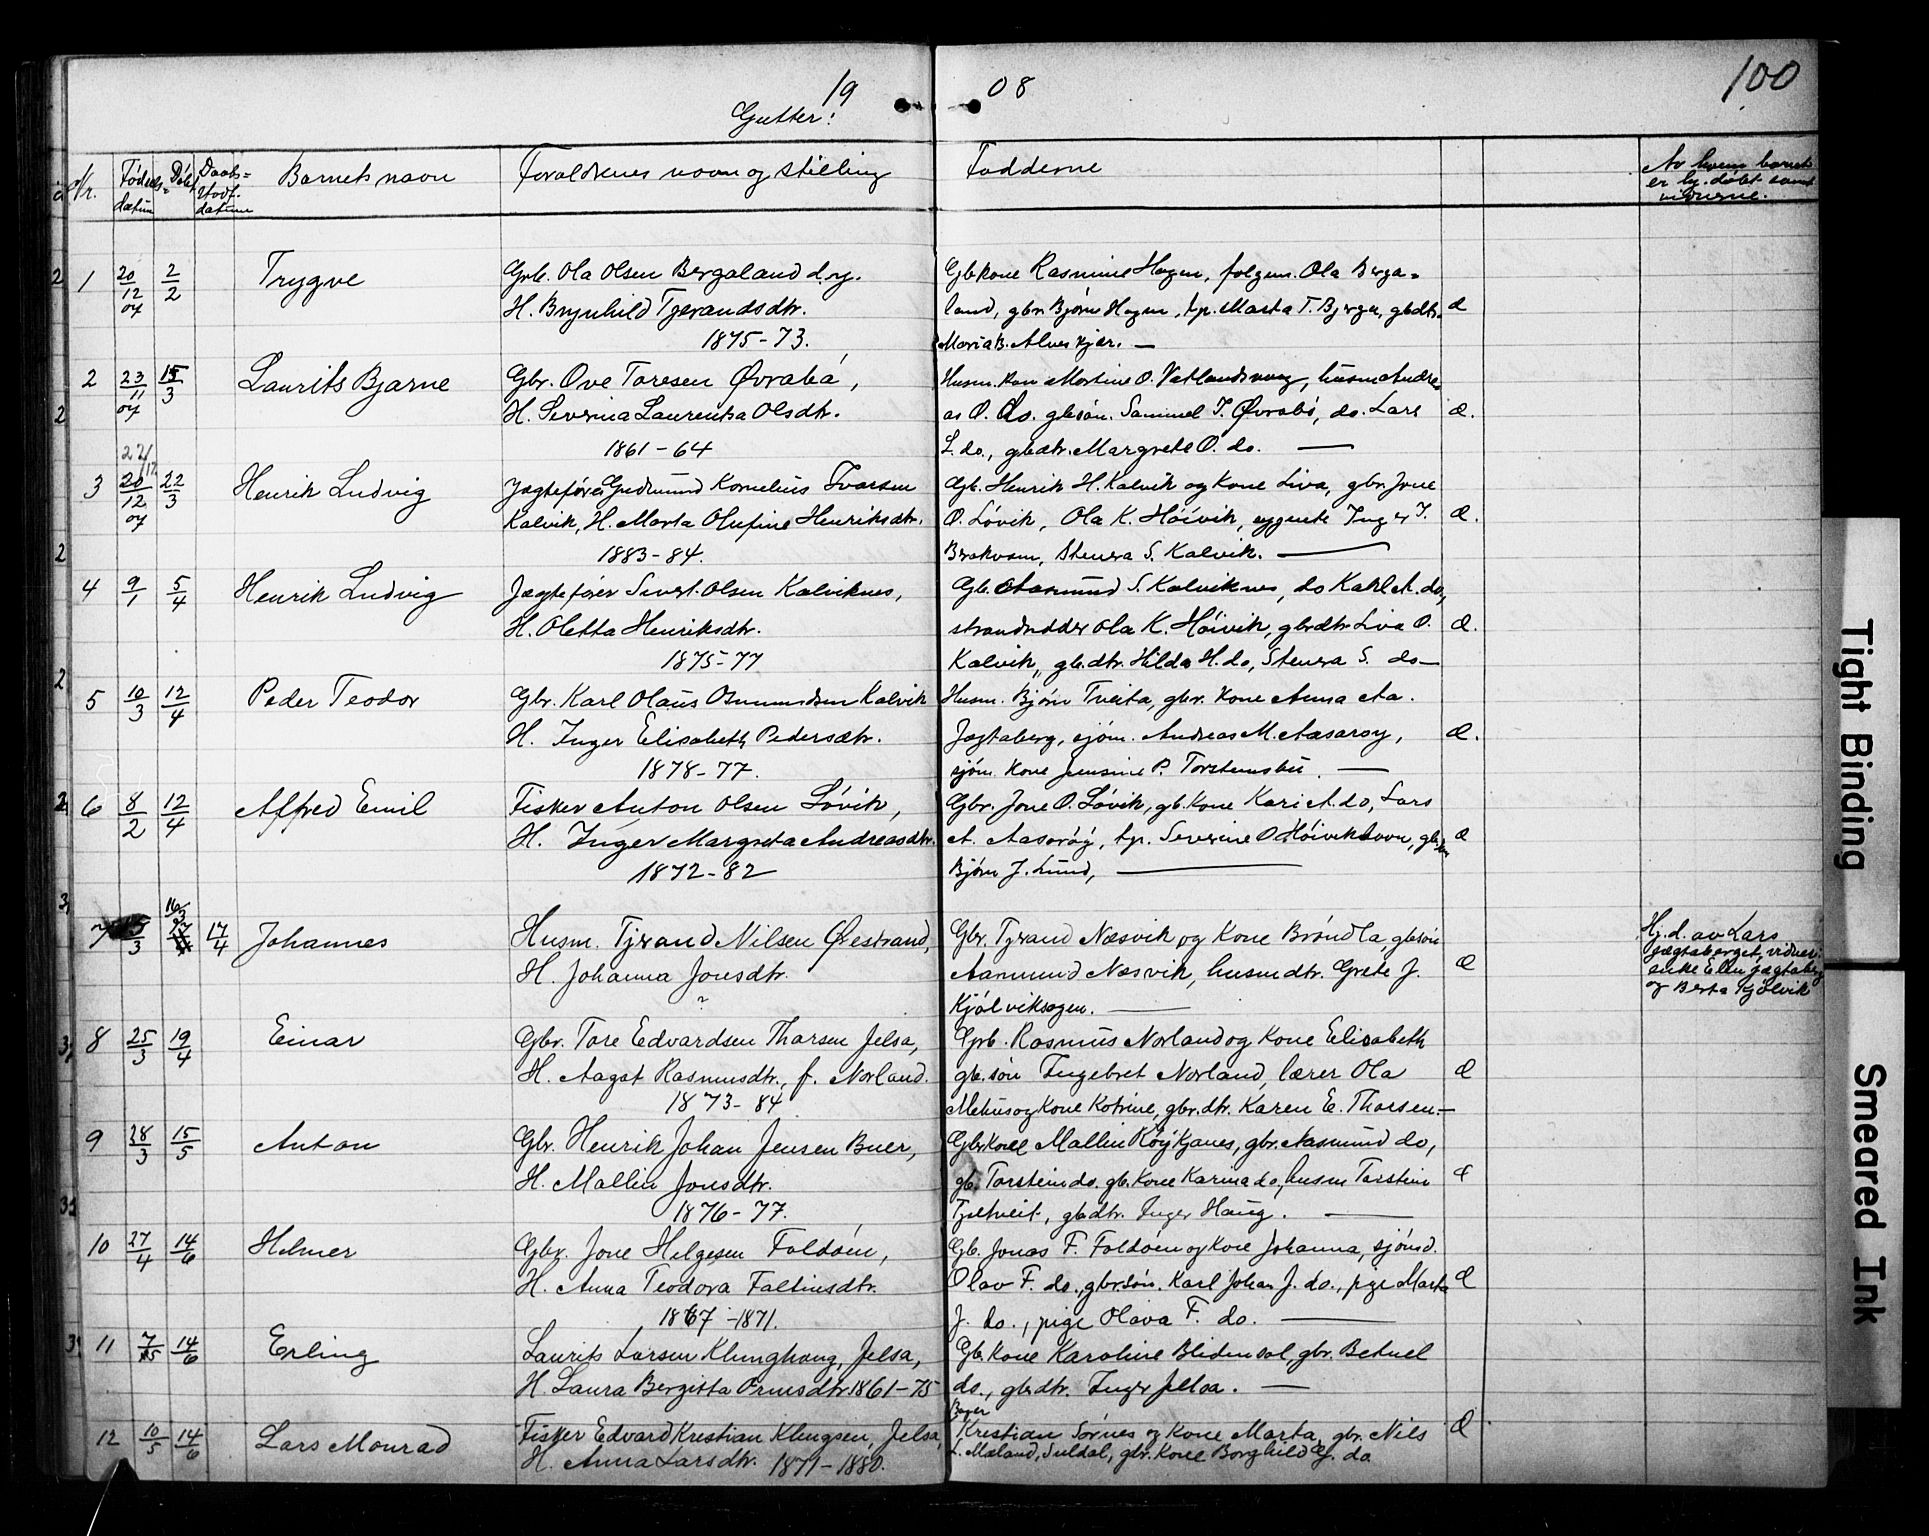 19 08
100
Gutter:
Nr. Fødsels= datum Døbt Daabs= datum Barnets navn Forældrenes navn og stilling Fadderne Av hvem barnet
er hj. døbt samt
vidnerne.
1 20/12 07 2/2 Trygve Grb. Ola Olsen Bergaland d.y. Gbkone Rasmine Hagen, folgem. Ola Berga=
H. Brynhild Tjerandsdtr. land, gbr. Bjørn Hagen, tp. Marta T. Bjerga, gbdtr. Æ
1875-73. Maria B. Alveskjær. —
2 23/11 07 15/3 Laurits Bjarne Gbr. Ove Toresen Øvrabø, Husm. kone Martine O. Vatlandsvaag, husm Andre
H. Severina Laurentsa Olsdtr. as O. do. gbsøn. Samuel T. Øvrabø, do. Lars Æ.
1861-64 L. do., gbdtr. Margrete O. do. —
22/12
3 20/12 07 22/3 Henrik Ludvig Jagtefører Gudmund Kornelius Ivarsen Gb. Henrik H. Kalvik og kone Liva, gbr. Jone
Kalvik, H. Marta Olufine Henriksdtr. O. Løvik, Ola K. Høivik, ugjente Inger T. Æ.
1883-84. Brakvam, Stensa S. Kalvik. —
4 9/1 5/4 Henrik Ludvig Jægtefører Sivert Olsen Kalviknes, Gb. Aasmund S. Kalviknes, do Karl A. do,
H. Oletta Henriksdtr. strandsidder Ola K. Høivik, gbrdtr Liva O. Æ.
1875-77 Kalvik, gb.dtr. Hilda H. do, Stensa S. do—
5 10/3 12/4 Peder Teodor Gbr. Karl Olaus Osmundsen Kalvik Husm. Bjørn Tveita, gbr. kone Anna Aa.
H. Inger Elisabeth Pedersdtr. Jagtaberg, sjøm. Andreas M. Aasarøy, Æ.
1878-77. sjøm. kone Jensine P. Torstensbu. —
6 8/2 12/4 Alfred Emil Fisker Anton Olsen Løvik, Gbr. Jone O. Løvik, gb. kone Kari A. do, Lars
H. Inger Margreta Andreasdtr. A. Aasarøy, tp. Severine O. Høivik, gbsøn Æ
1872-82 Bjørn J. Lund, —
16/3
7 15/3 17/4 Johannes Husm. Tjerand Nilsen Ørestrand, Gbr. Tjerand Næsvik og kone Brøndla, gbsøn Hj. d. av Lars
H. Johanna Jonsdtr. Aasmund Næsvik, husmdtr. Grete J. Æ Jægtaberget, vidner:
? Kjølviksagen. — enke Elen Jægtaberg
og Berta Kjølvik
8 25/3 19/4 Einar Gbr. Tore Edvardsen Thorsen Jelsa, Grb. Rasmus Norland og kone Elisabeth
H. Aagot Rasmusdtr., f. Norland. gb. søn Ingebret Norland, lærer Ola Æ
1873-84 Mehus og kone Katrine, gbr.dtr. Karen E. Thorsen—
9 28/3 15/5 Anton Gbr. Henrik Johan Jensen Buer, Gbr kone Mallin Røykjanes, gbr. Aasmund do,
H. Mallin Jonsdtr. gb. Torstein do. gb. kone Karina do, husm Torstein Æ
1876-77. Tjeltveit, gbdtr. Inger Haug. —
10 27/4 14/6 Helmer Gbr. Jone Helgesen Foldøen, Gb. Jonas F. Foldøen og kone Johanna, sjømd.
H. Anna Teodora Faltinsdtr. Olav F. do., gbrsøn. Karl Johan J. do., pige Marta Æ
1867-1871. J. do., pige Olava F. do. —
11 7/5 14/6 Erling Laurits Larsen Klunghaug, Jelsa, Gb. kone Karoline Blidensol, gbr. Betuel
H. Laura Bergitta Ormsdtr. 1861-75 do., gbdtr. Inger Jelsa. —
12 10/5 14/6 Lars Monrad Fisker Edvard Kristian Klingsen, Jelsa, Bager Kristian Sørnes og kone Marta, gbr. Nils Æ
H. Anna Larsdtr. 1871-1880. L. Mæland, Suldal, gbr. kone Borghild G. do.
Tight Binding
Smeared Ink